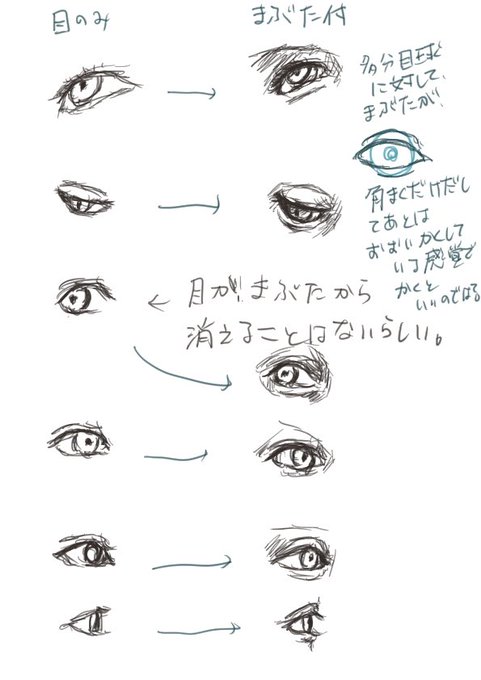 目のみ
まぶた付
多分目球
に対して、
まぶたが、
角まくだけだし
てあとは
おおいかくして
いる感覚で
かくと
いいのではる
← 目が、まぶたから
消えることはないらしい。